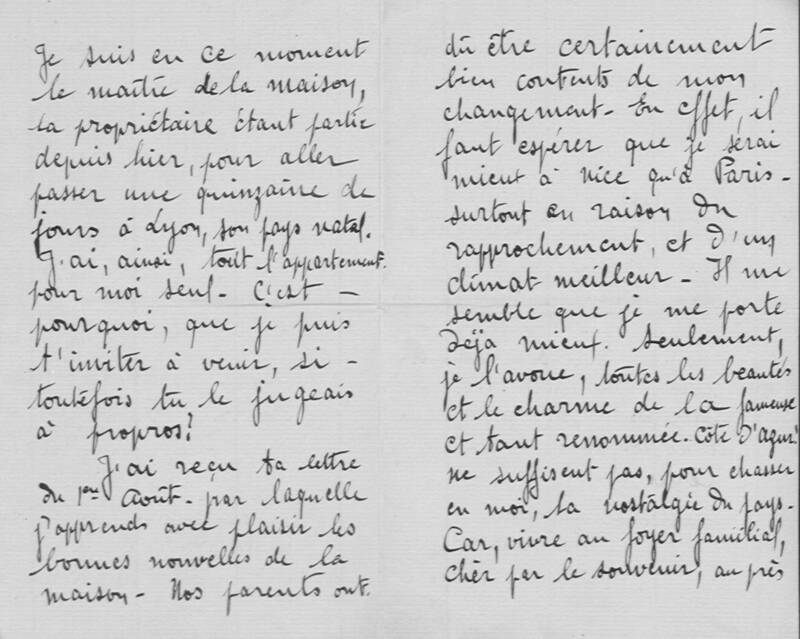 Je suis en ce moment
le maître de la maison,
la propriétaire étant partie
depuis hier, pour aller
passer une quinzaine de
jours à Lyon, son pays natal.
J'ai, ainsi, tout l'appartement
pour moi seul - C'est -
pourquoi, que je puis
t'inviter à venir, si -
toutefois tu le jugeais
à propos?
J'ai reçu ta lettre
du 1er Août - par laquelle
j'apprends avec plaisir les
bonnes nouvelles de la
maison - Nos parents ont
dû être certainement
bien contents de mon
changement - En effet, il
faut espérer que je serai
mieux à Nice qu'à Paris -
surtout en raison du
rapprochement, et d'un
climat meilleur - Il me
semble que je me porte
déjà mieux. Seulement,
je l'avoue, toutes les beautés
et le charme de la fameuse
et tant renommée - Côte d'azur!
ne suffisent pas, pour chasser
en moi, la nostalgie du pays -
Car, vivre au foyer familial,
chèr par le souvenir, au près